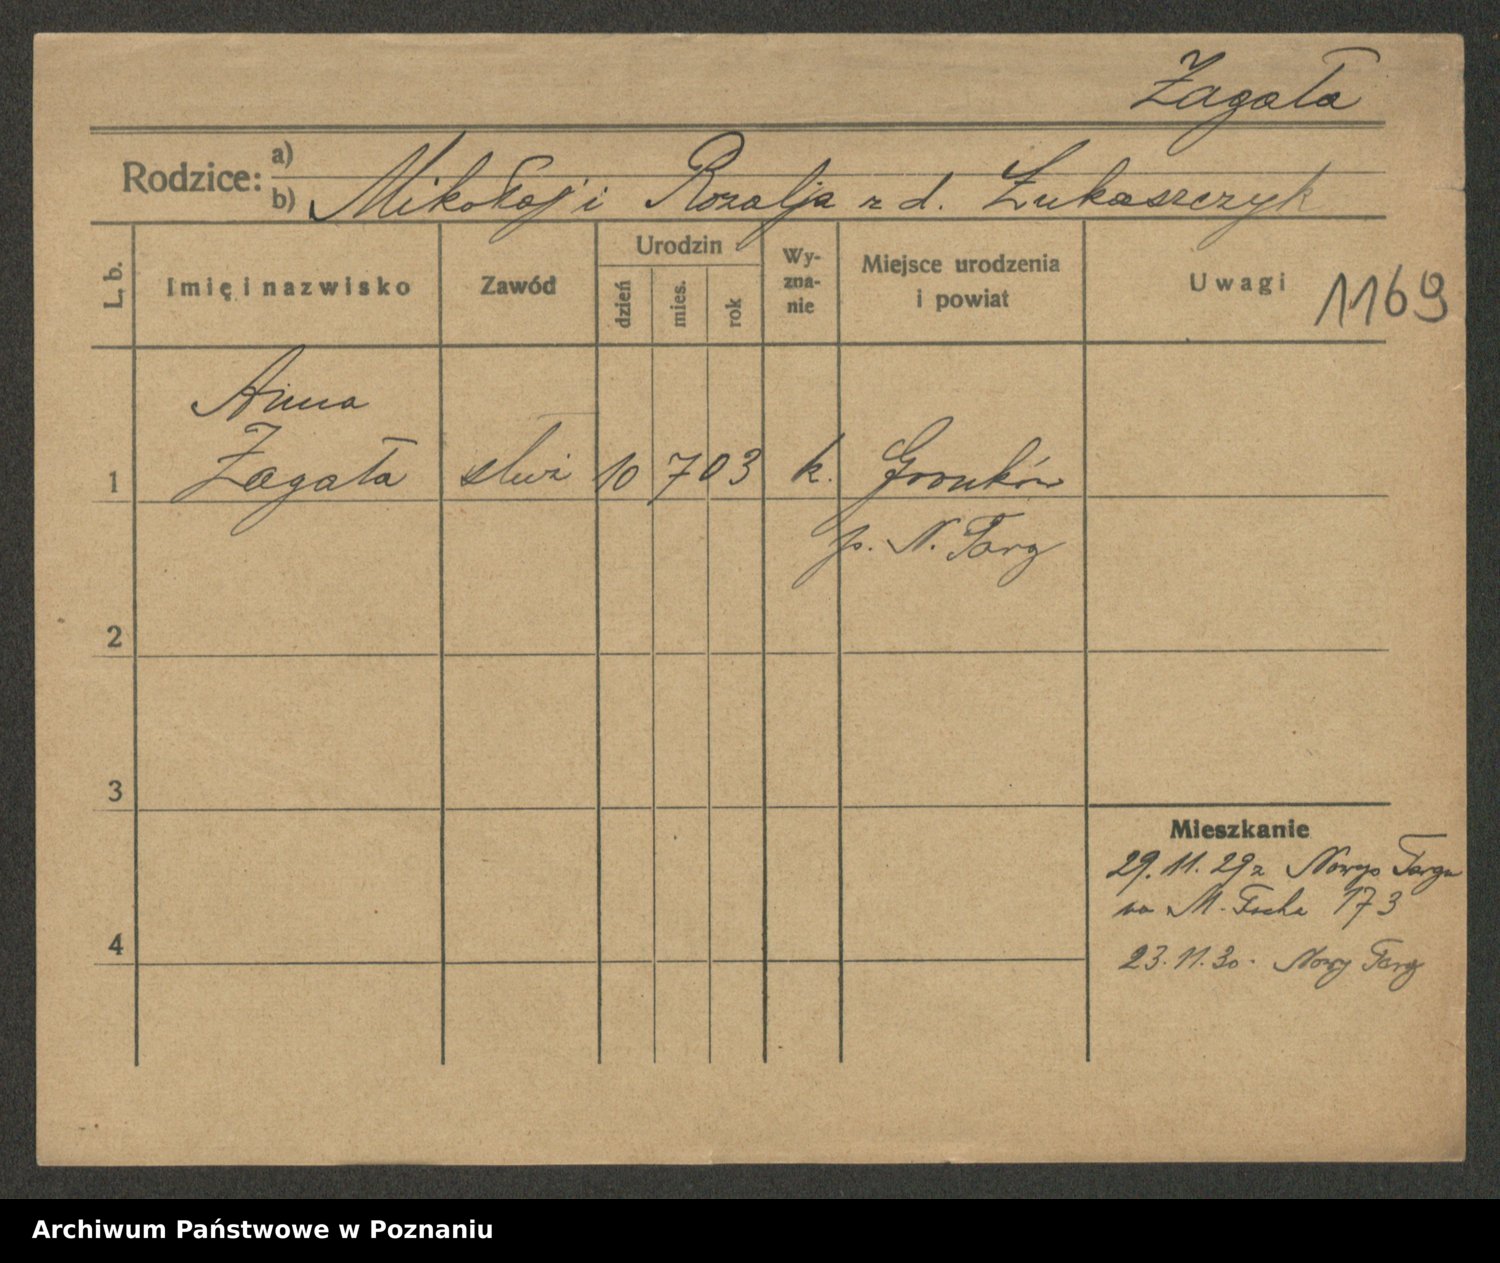 Zagała
Rodzice:
a)
b) Mikołaj i Rozalja z d. Łukaszczyk
L. b.
Imię i nazwisko
Zawód
Urodzin
dzień
mies.
rok
Wy-
zna-
nie
Miejsce urodzenia
i powiat
Uwagi
1169
Anna
1 Zagała służ 10 7 03 k. Gronków
p. N. Targ
2
3
Mieszkanie
29. 11. 29 z Nowego Targu
na M. Focha 173
4
23. 11. 30. Nowy Targ
Archiwum Państwowe w Poznaniu